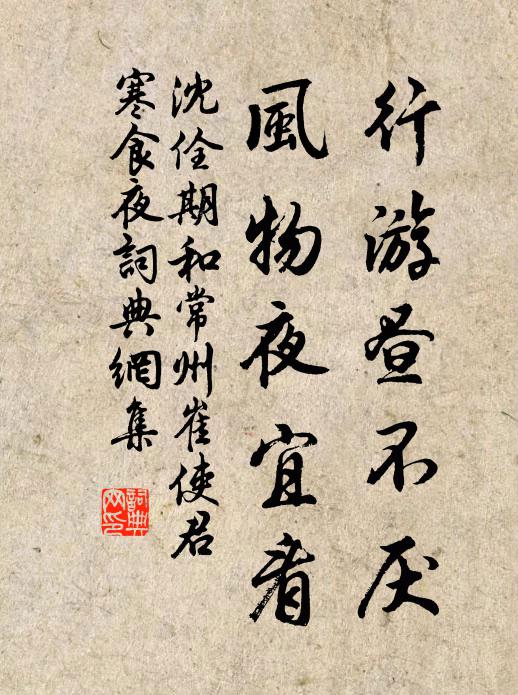 行游昼不厌
風物夜宜看
沈佺期和常州崔使君
寒食夜詞典網集
詞典
网印